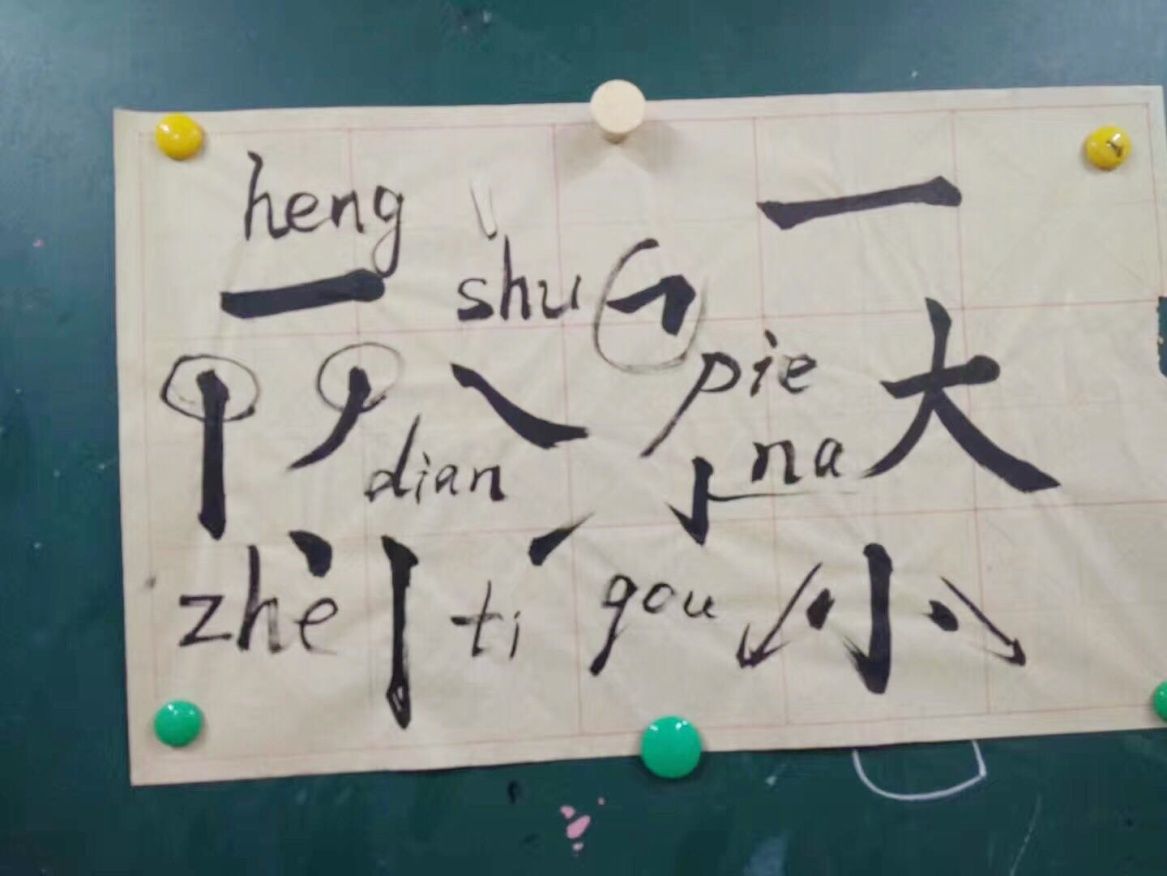 heng 一
shu
pie 大
dian na
zhe ti gou 小